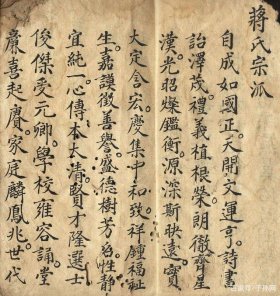 蔣氏宗派
自成如國正天開文運亨詩書
詒澤茂禮義植根榮朗徹奎星
漢光昭燦鑑衡源深斯遠寶
大定含宏慶集中和致祥鍾福祉
生嘉謨徵善譽盛德樹芳名性靜
宜純一心傳本太清賢才隆選士
俊傑受元卿學校雍容誦堂
廉喜起賡家庭麟鳳兆世代